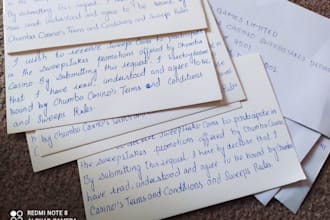 By submitting this request, I
have read, understood and agree to be bound by
Chumba Casino's Terms and Conditions and Sweeps
Rules.
I wish to receive Sweeps Coins to participate
in the sweepstakes promotions offered by Chumba
Casino. By submitting this request, I hereby declare
that I have read, understood and agree to be
bound by Chumba Casino's Terms and Conditions
and Sweeps Rules.
by Chumba Casino's
Sweepstakes Coins to participate in
the sweepstakes promotions offered by Chumba Casino.
By submitting this request, I hereby declare that I
have read, understood and agree to be bound by Chumba
Casino's Terms and Conditions and Sweeps Rules.
GAMES LIMITED
CASINO SWEEPSTAKES DEPA
REDMI NOTE 8
AI QUAD CAMERA